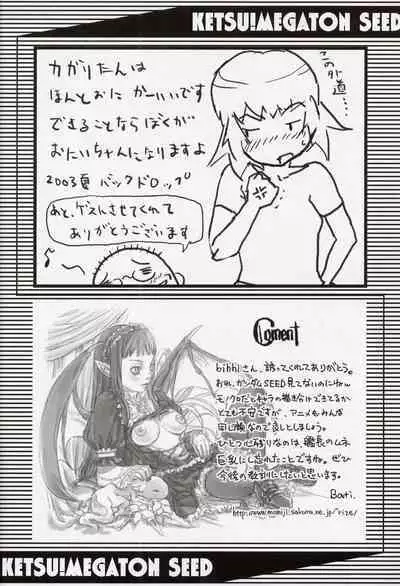 KETSU!MEGATON SEED
この外道…
カガリたんは
ほんとおに かーいいです
できることならぼくが
おにいちゃんになりますよ
2003夏 バックドロップ
あと、ゲストさせてくれて
ありがとうございます
Coment
bihhiさん、誘ってくれてありがとう。
おれ、ガンダムSEED見てないのにねw
モノクロだとキャラの描き分けできてるか
とても不安ですが、アニメもみんな
同じ顔なので良しとしましょう。
ひとつ心残りなのは、艦長のムネ
巨乳にし忘れたことですね。ぜひ
今後の教訓にしたいと思います。
Bati.
KETSU!MEGATON SEED